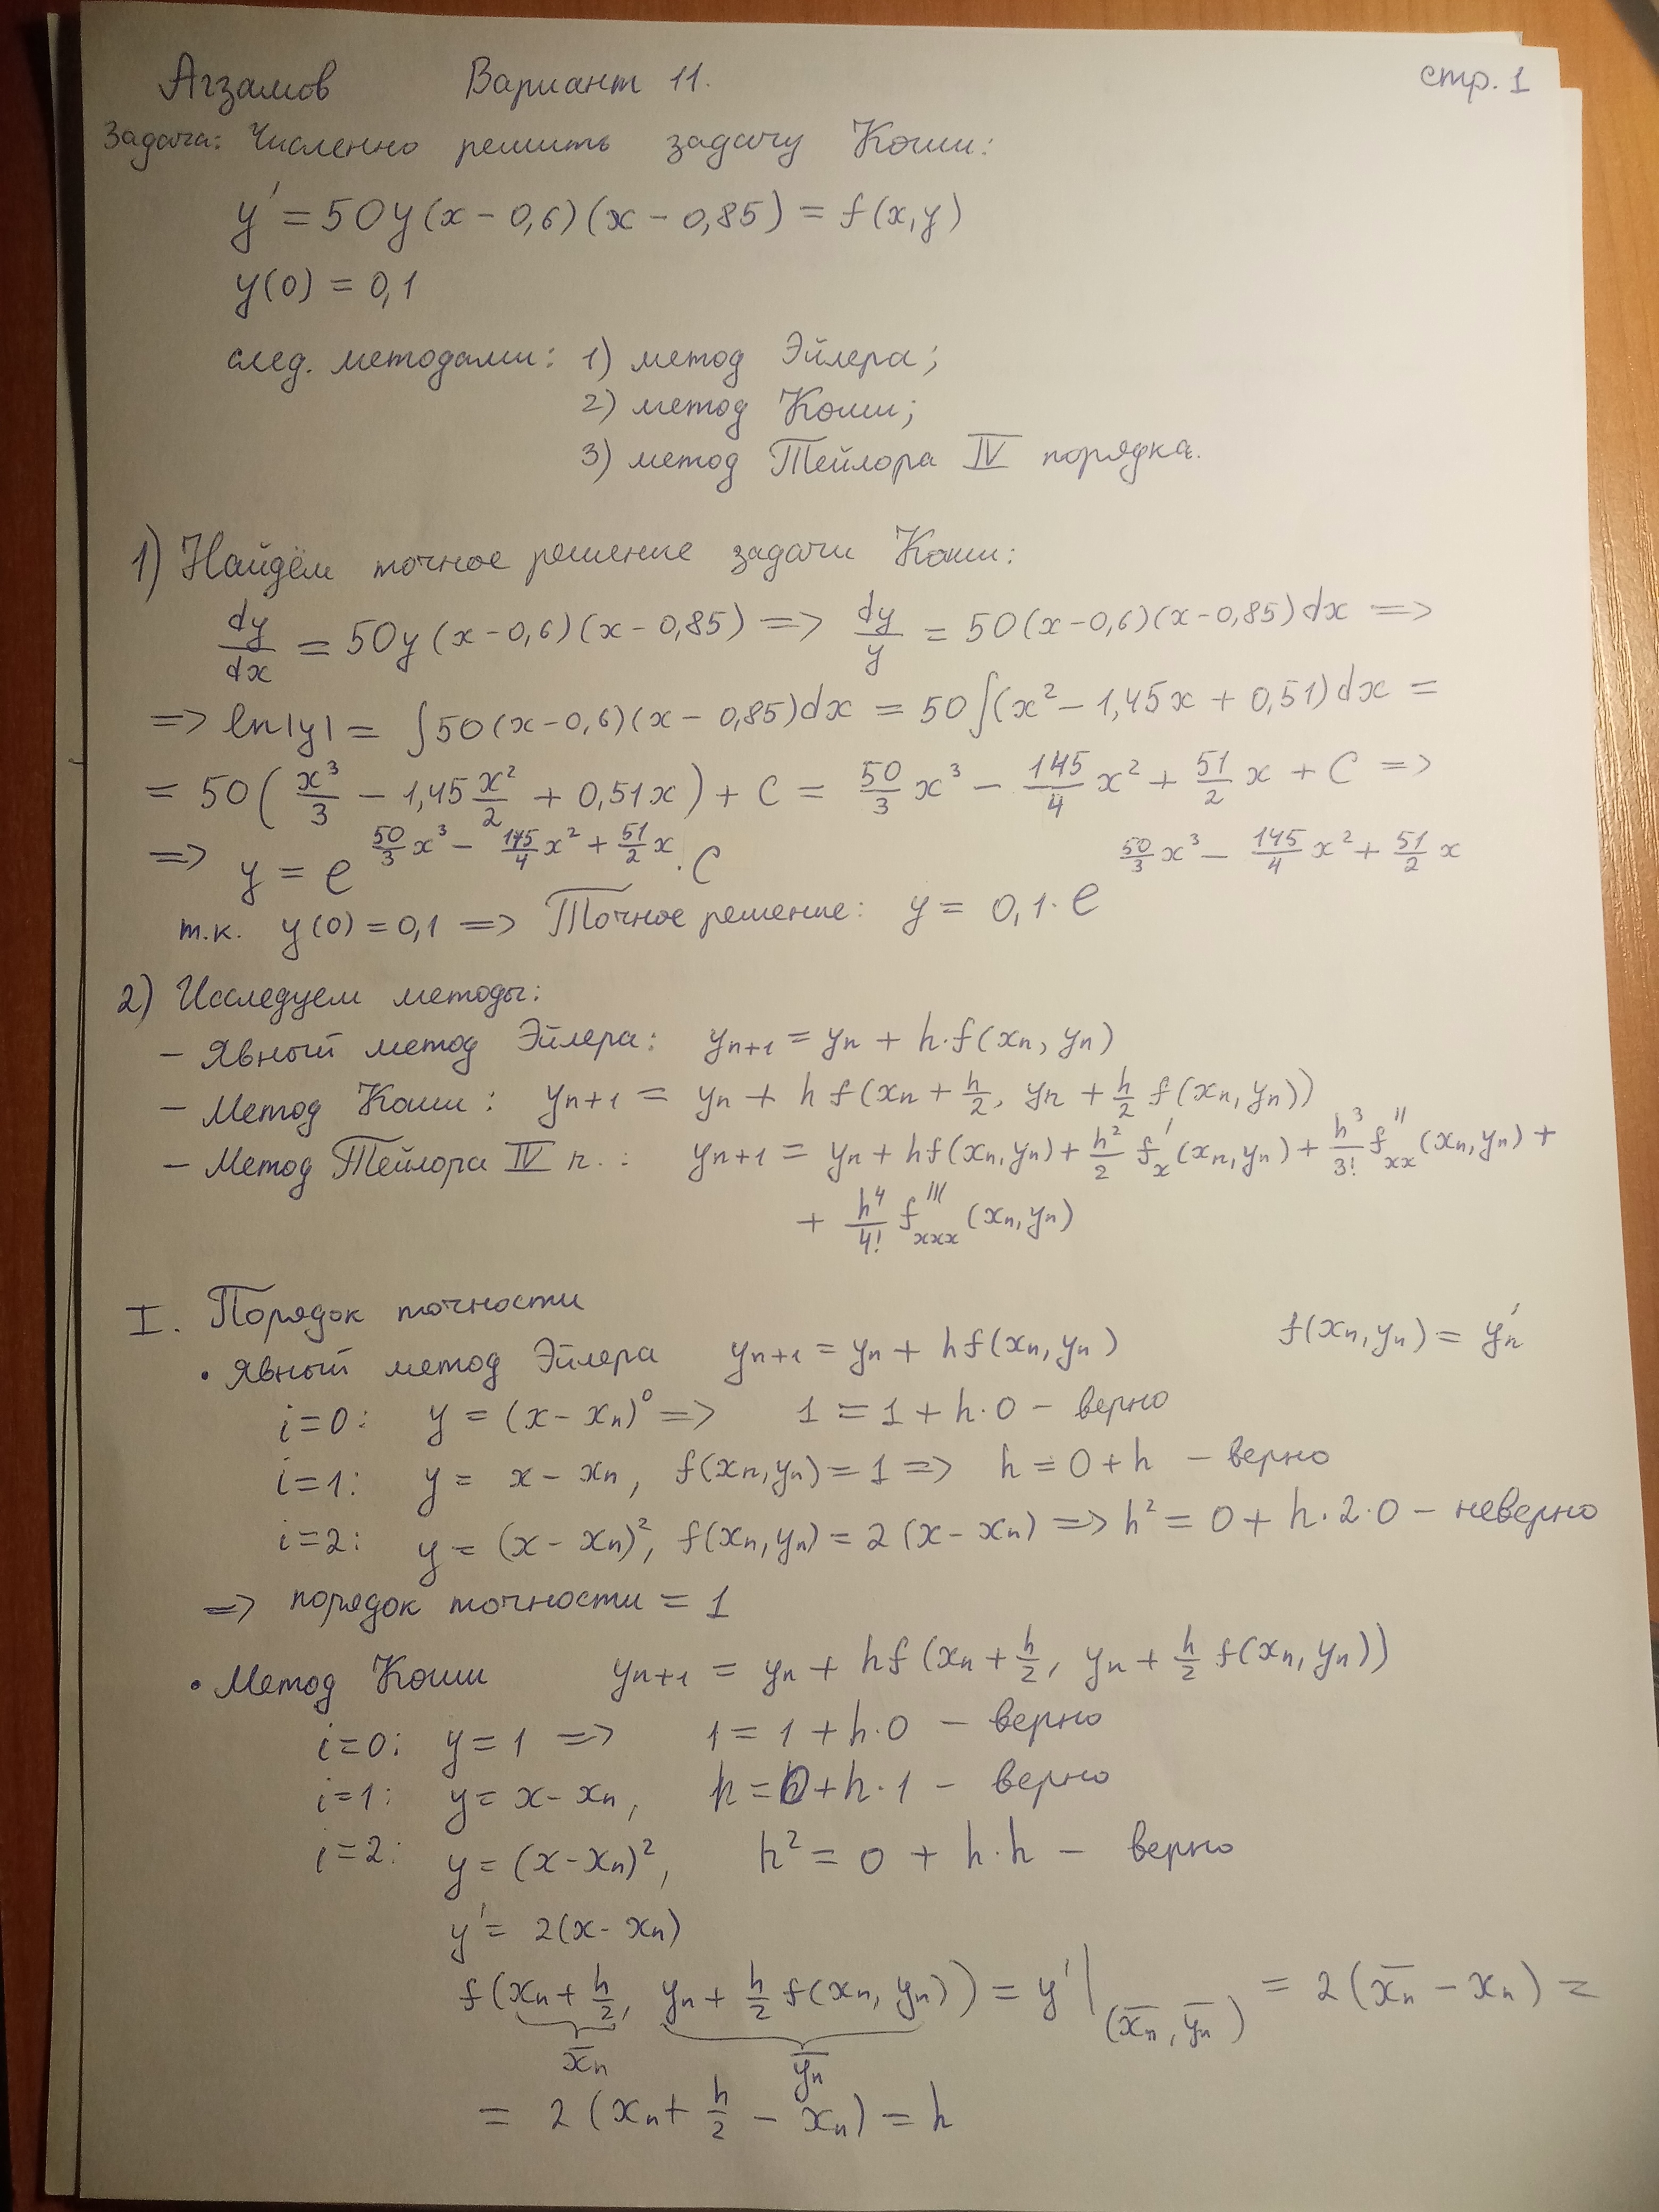 Агзамов Вариант 11. стр. 1
Задача: Численно решить задачу Коши:
y' = 50y(x − 0,6)(x − 0,85) = f(x,y)
y(0) = 0,1
след. методами: 1) метод Эйлера;
2) метод Коши;
3) метод Тейлора IV порядка.
1) Найдём точное решение задачи Коши:
dy/dx = 50y(x−0,6)(x−0,85) => dy/y = 50(x−0,6)(x−0,85)dx =>
=> ln|y| = ∫50(x−0,6)(x−0,85)dx = 50∫(x² − 1,45x + 0,51)dx =
= 50(x³/3 − 1,45 x²/2 + 0,51x) + C = 50/3 x³ − 145/4 x² + 51/2 x + C =>
=> y = e^(50/3 x³ − 145/4 x² + 51/2 x) · C
т.к. y(0) = 0,1 => Точное решение: y = 0,1 · e^(50/3 x³ − 145/4 x² + 51/2 x)
2) Исследуем методы:
− Явный метод Эйлера: yₙ₊₁ = yₙ + h·f(xₙ, yₙ)
− Метод Коши: yₙ₊₁ = yₙ + h f(xₙ + h/2, yₙ + h/2 f(xₙ, yₙ))
− Метод Тейлора IV п.: yₙ₊₁ = yₙ + hf(xₙ, yₙ) + h²/2 f'ₓ(xₙ, yₙ) + h³/3! f''ₓₓ(xₙ, yₙ) +
+ h⁴/4! f'''ₓₓₓ(xₙ, yₙ)
I. Порядок точности
• Явный метод Эйлера yₙ₊₁ = yₙ + hf(xₙ, yₙ) f(xₙ, yₙ) = y'ₙ
i=0: y = (x − xₙ)⁰ => 1 = 1 + h·0 − верно
i=1: y = x − xₙ, f(xₙ, yₙ) = 1 => h = 0 + h − верно
i=2: y = (x − xₙ)², f(xₙ, yₙ) = 2(x − xₙ) => h² = 0 + h·2·0 − неверно
=> порядок точности = 1
• Метод Коши yₙ₊₁ = yₙ + hf(xₙ + h/2, yₙ + h/2 f(xₙ, yₙ))
i=0: y = 1 => 1 = 1 + h·0 − верно
i=1: y = x − xₙ, h = 0 + h·1 − верно
i=2: y = (x − xₙ)², h² = 0 + h·h − верно
y' = 2(x − xₙ)
f(xₙ + h/2, yₙ + h/2 f(xₙ, yₙ)) = y'|(x̅ₙ, y̅ₙ) = 2(x̅ₙ − xₙ) =
x̅ₙ y̅ₙ
= 2(xₙ + h/2 − xₙ) = h